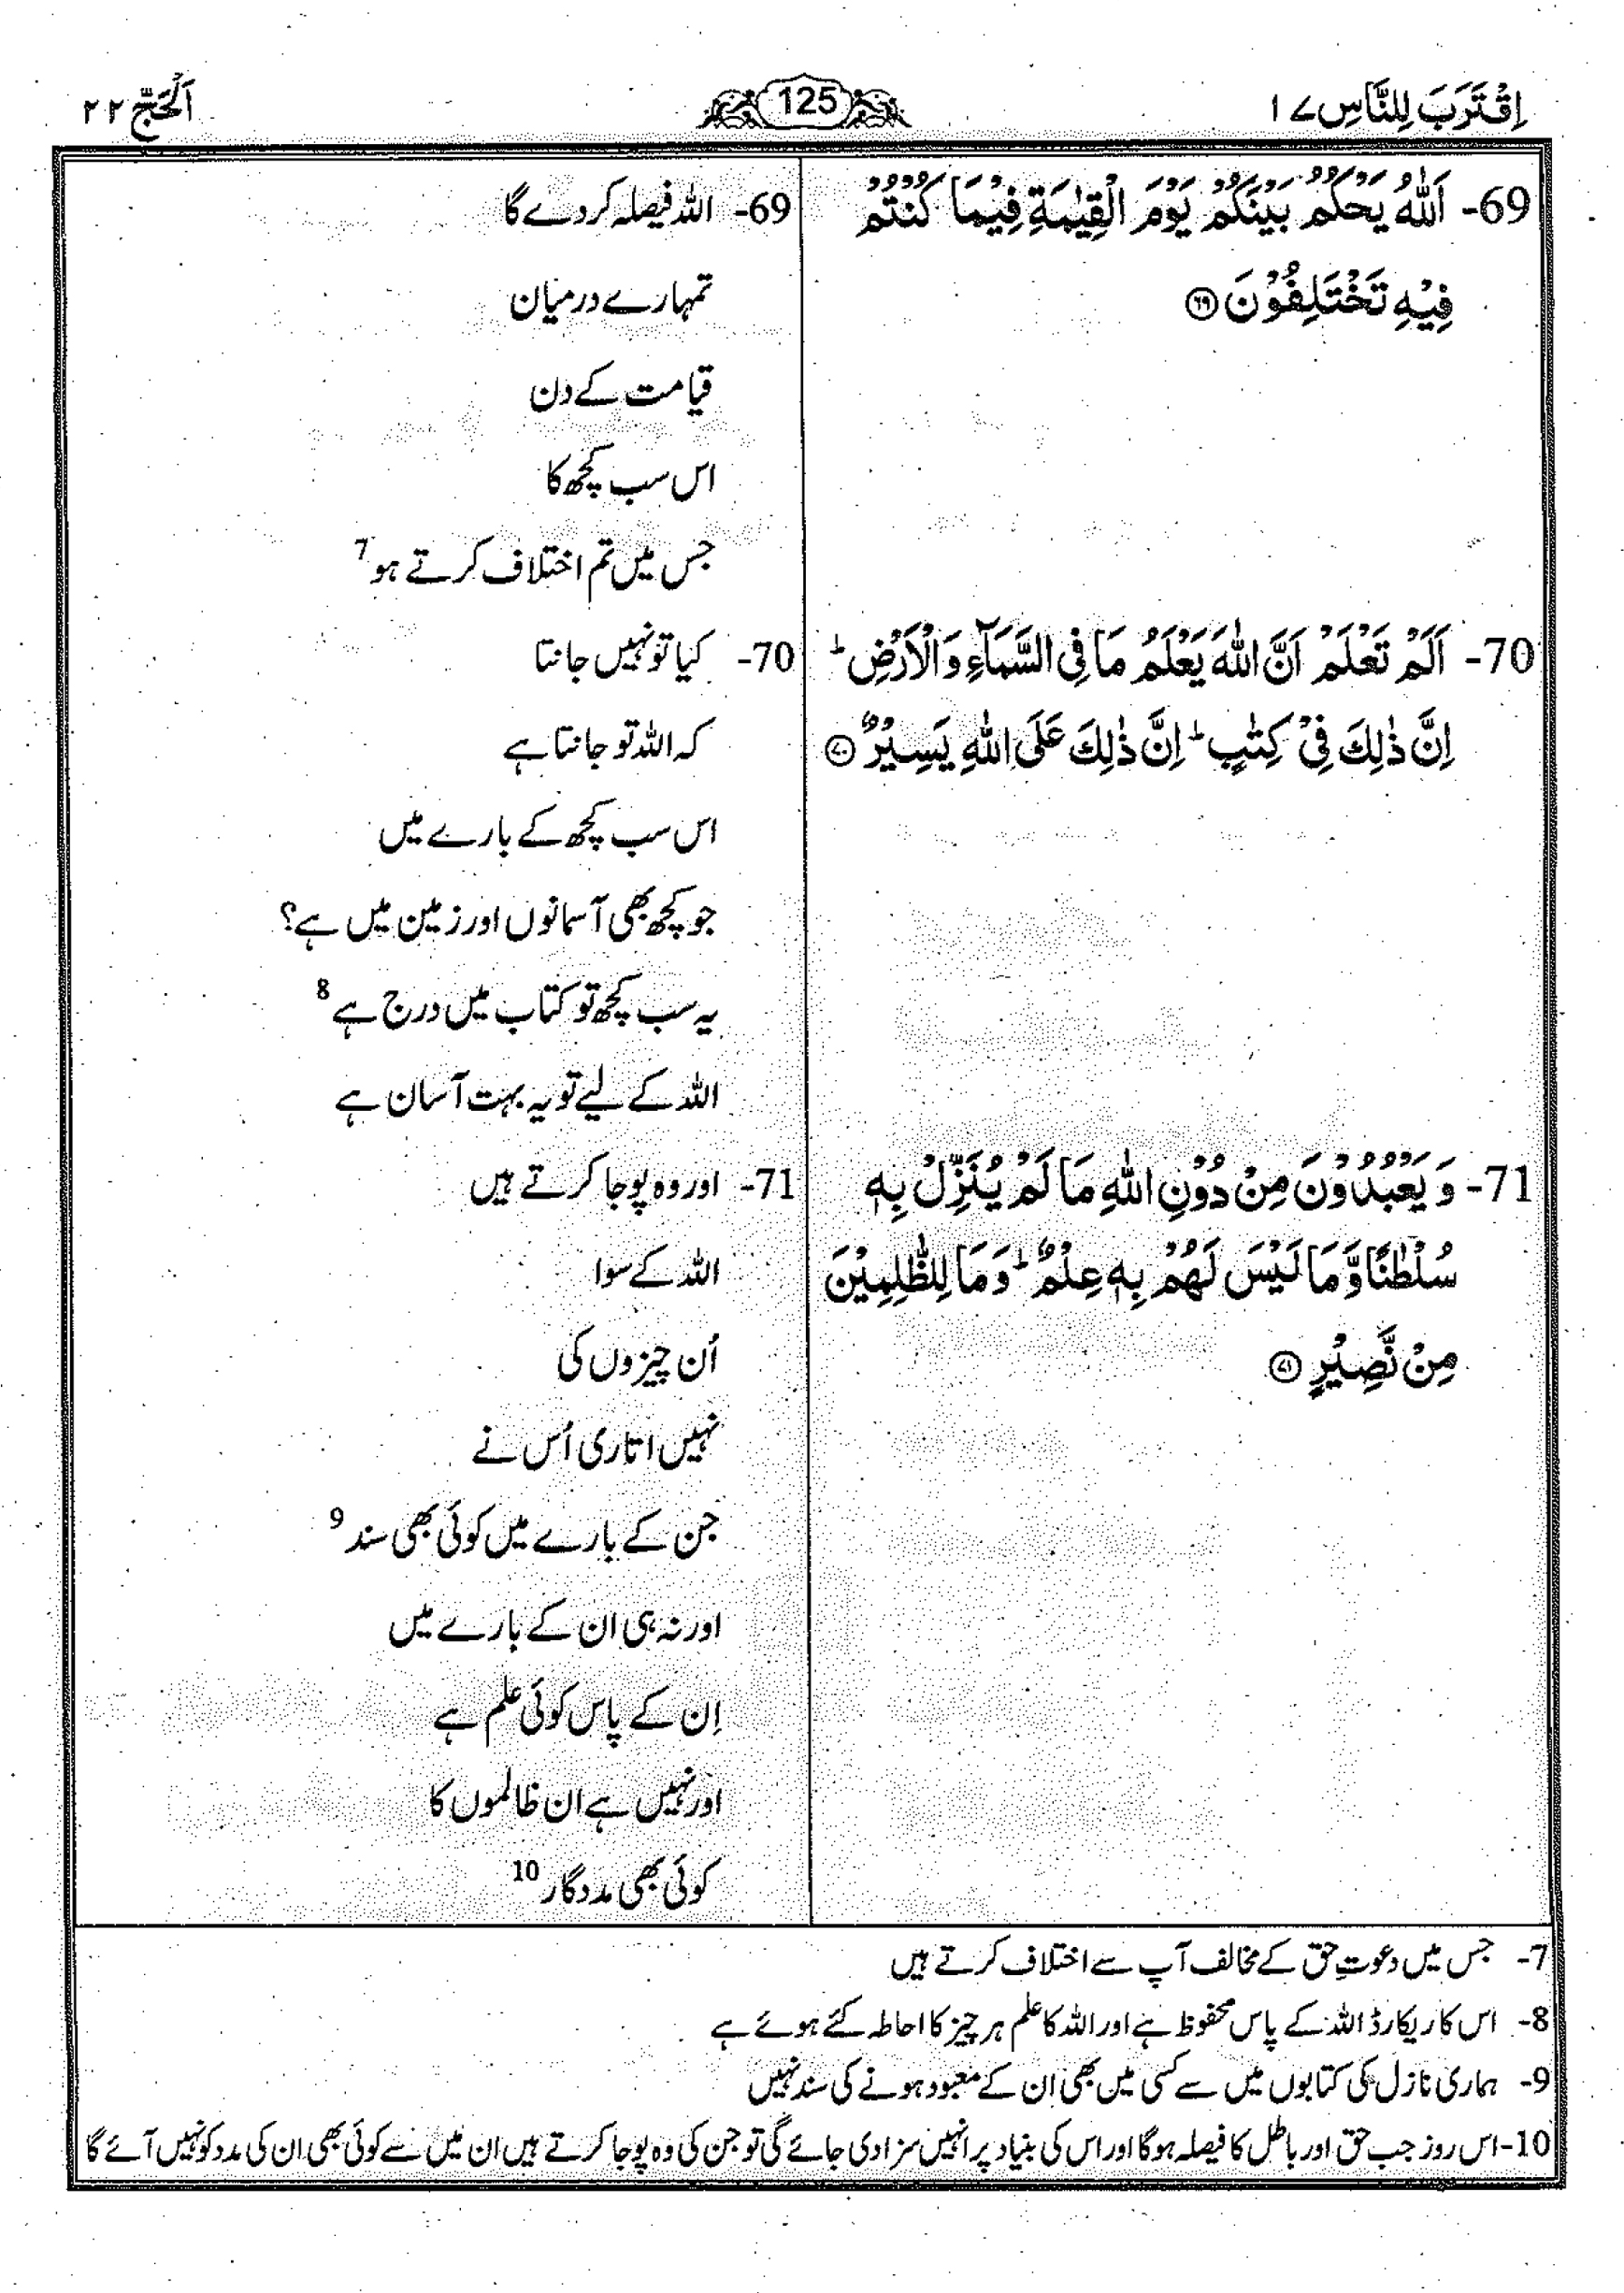 اِقْتَرَبَ لِلنَّاسِ ۱۷
125
اَلْحَجّ ۲۲
69- اَللّٰهُ يَحْكُمُ بَيْنَكُمْ يَوْمَ الْقِيٰمَةِ فِيْمَا كُنْتُمْ
فِيْهِ تَخْتَلِفُوْنَ ۶۹
69- اللہ فیصلہ کر دے گا
تمہارے درمیان
قیامت کے دن
اس سب کچھ کا
جس میں تم اختلاف کرتے ہو 7
70- اَلَمْ تَعْلَمْ اَنَّ اللّٰهَ يَعْلَمُ مَا فِي السَّمَآءِ وَ الْاَرْضِ ؕ
اِنَّ ذٰلِكَ فِيْ كِتٰبٍ ؕ اِنَّ ذٰلِكَ عَلَى اللّٰهِ يَسِيْرٌ ۷۰
70- کیا تو نہیں جانتا
کہ اللہ تو جانتا ہے
اس سب کچھ کے بارے میں
جو کچھ بھی آسمانوں اور زمین میں ہے؟
یہ سب کچھ تو کتاب میں درج ہے 8
اللہ کے لیے تو یہ بہت آسان ہے
71- وَ يَعْبُدُوْنَ مِنْ دُوْنِ اللّٰهِ مَا لَمْ يُنَزِّلْ بِهٖ
سُلْطٰنًا وَّ مَا لَيْسَ لَهُمْ بِهٖ عِلْمٌ ؕ وَ مَا لِلظّٰلِمِيْنَ
مِنْ نَّصِيْرٍ ۷۱
71- اور وہ پوجا کرتے ہیں
اللہ کے سوا
اُن چیزوں کی
نہیں اتاری اُس نے
جن کے بارے میں کوئی بھی سند 9
اور نہ ہی ان کے بارے میں
اِن کے پاس کوئی علم ہے
اور نہیں ہے ان ظالموں کا
کوئی بھی مددگار 10
7- جس میں دعوتِ حق کے مخالف آپ سے اختلاف کرتے ہیں
8- اس کا ریکارڈ اللہ کے پاس محفوظ ہے اور اللہ کا علم ہر چیز کا احاطہ کئے ہوئے ہے
9- ہماری نازل کی کتابوں میں سے کسی میں بھی اِن کے معبود ہونے کی سند نہیں
10- اس روز جب حق اور باطل کا فیصلہ ہوگا اور اس کی بنیاد پر انہیں سزا دی جائے گی تو جن کی وہ پوجا کرتے ہیں ان میں سے کوئی بھی ان کی مدد کو نہیں آئے گا